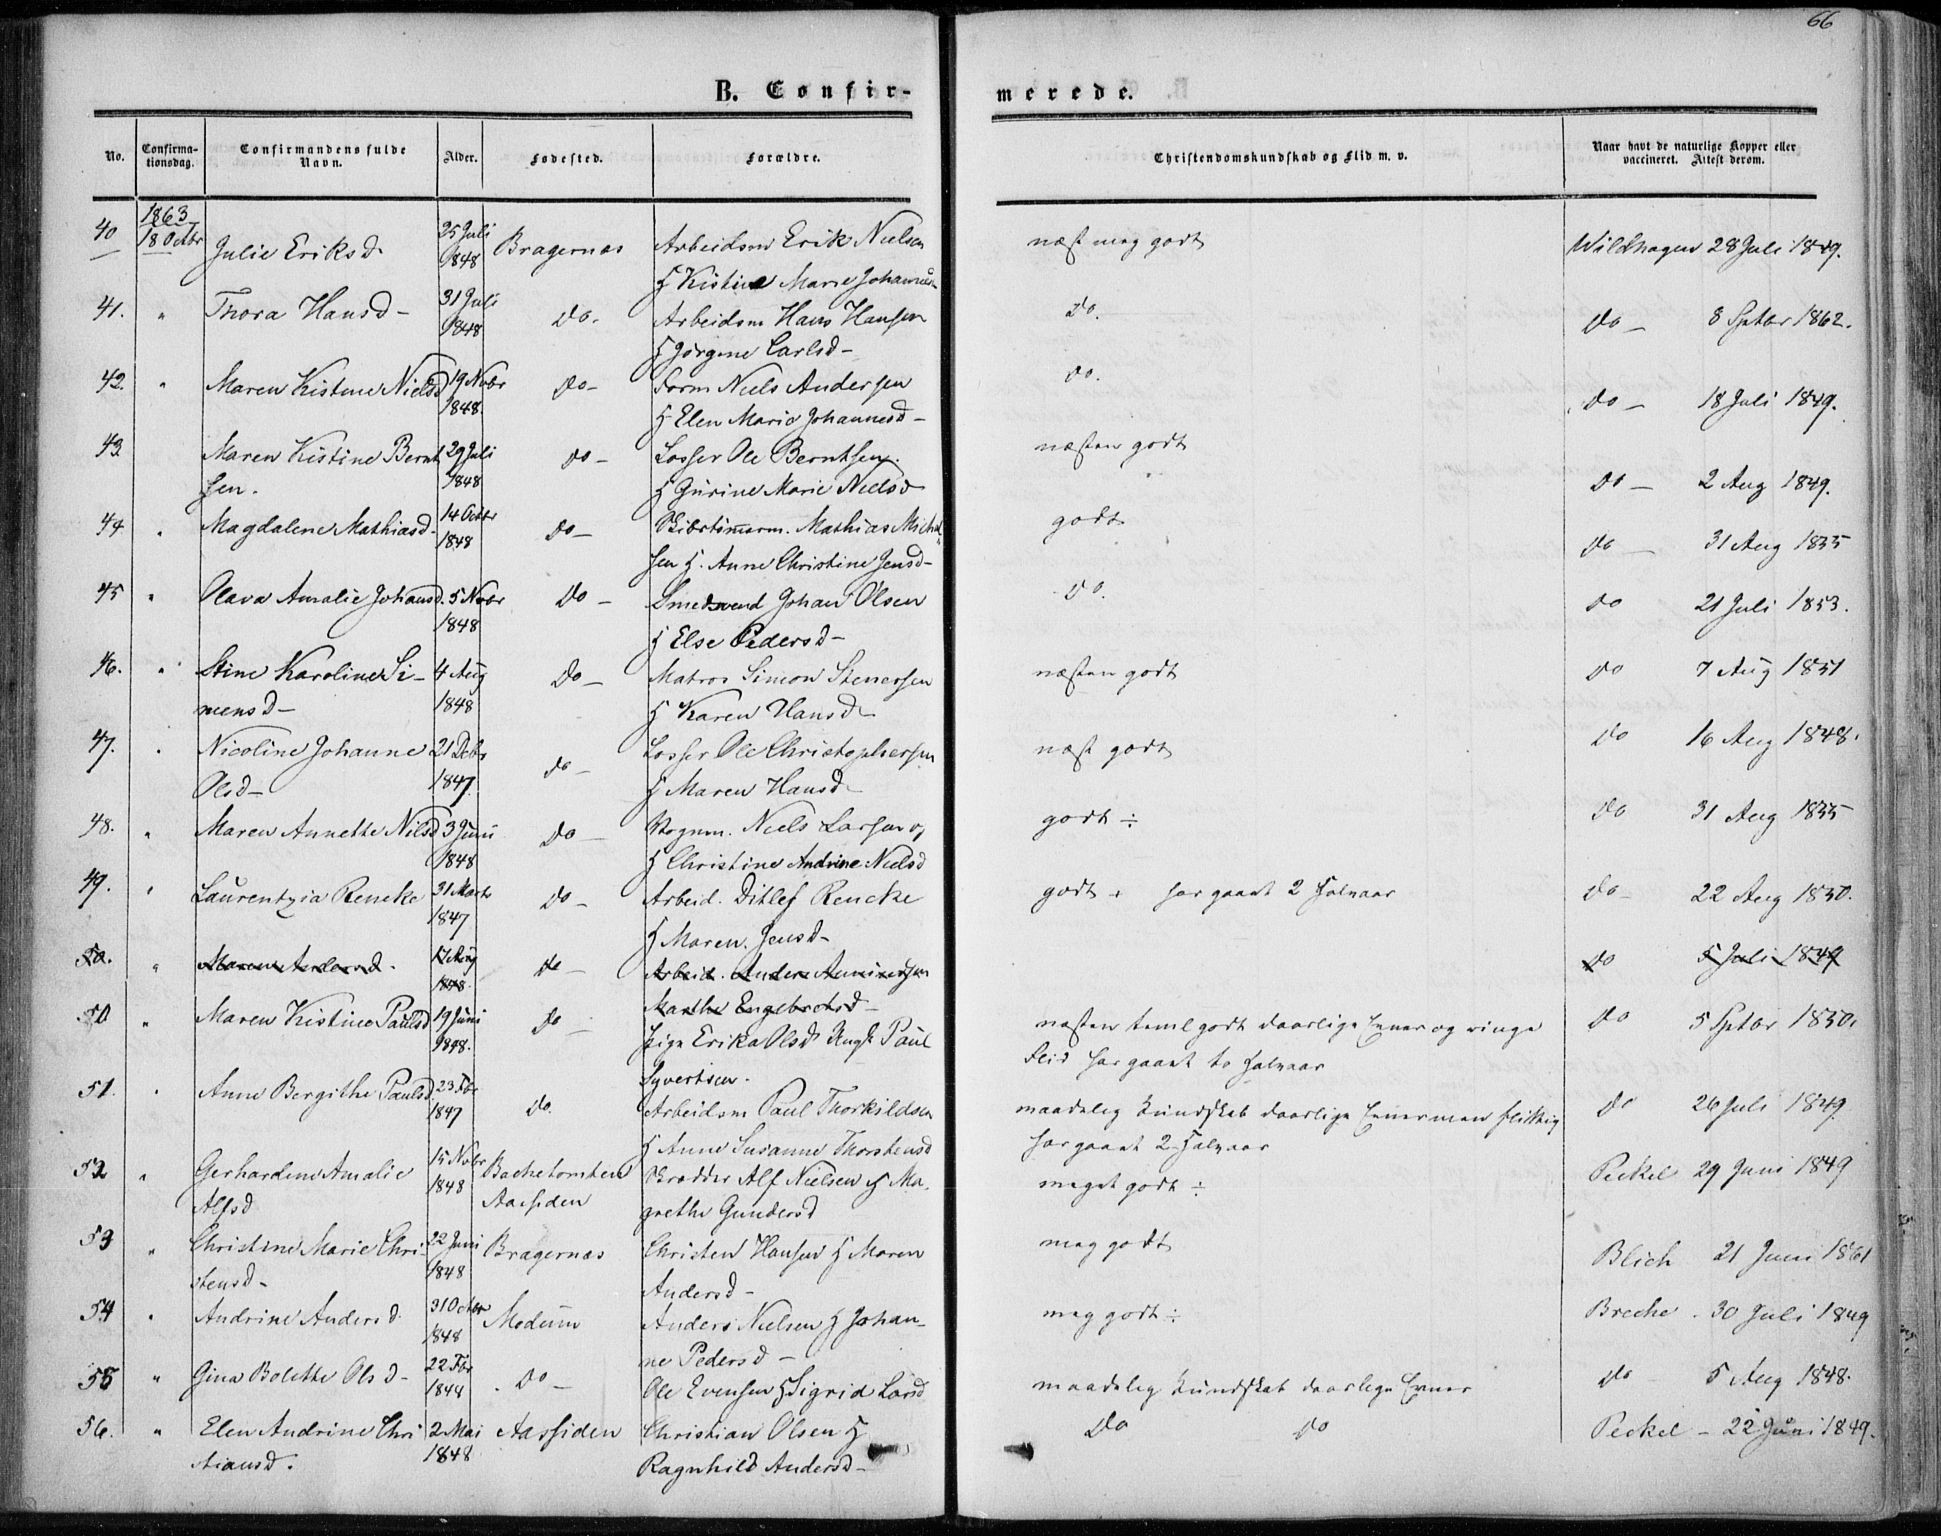 66
B. Confir-
merede.
No.
Confirma-
tionsdag.
Confirmandens fulde
Navn.
Alder.
Fødested.
Forældre.
Christendomskundskab og Flid m. v.
Naar havt de naturlige Kopper eller
vaccineret. Attest derom.
1863
40 18 Octbr Julie Eriksd 25 Juli Bragernæs Arbeidsm Erik Nielsen næst meg godt Wildhagen 28 Juli 1849.
1848 Kistine Marie Johannesd
41. " Thora Hansd- 31 Juli do. Arbeidsm Hans Hansen do. do - 8 Sptbr 1862.
1848 Jørgine Carlsd-
42. " Maren Kistine Nielsd 19 Nvbr do- Form Niels Andersen do. do - 18 Juli 1849.
1848. Elen Marie Johannesd-
43 Maren Kistine Bernt 29 Juli do - Losser Ole Berntsen. næsten godt do - 2 Aug 1849.
sen. 1848 Gurine Marie Nielsd
44 " Magdalene Mathiasd- 14 Octbr do - Skibstømerm. Mathias Michel godt do - 31 Aug 1855
1848 sen Anne Christine Jensd-
45 " Olava Amalie Johansd. 5 Nvbr do - Smedsvend Johan Olsen do. do 21 Juli 1853.
1848 Else Pedersd-
46. " Stine Karoline Si- 4 Aug do - Matros Simon Stenersen næsten godt do 7 Aug 1851
mensd- 1848 Karen Hansd-
47. " Nicoline Johanne 21 Dcbr do - Losser Ole Christophersen næst godt do 16 Aug 1848.
Olsd- 1847 Maren Hansd-
48. " Maren Annette Nilsd 3 Juni do - Vognm. Niels Larsen og godt ÷ do 31 Aug 1855
1848 Christine Andrine Nielsd
49. " Laurentzia Rencke 31 Marts do - Arbeid. Ditlef Rencke godt + har gaaet 2 Halvaar do - 22 Aug 1850.
1847 Maren Jensd-
50. " Maren Andersd. 17 Aug do - Arbeid. Anders do 5 Juli 1849
1848. Marthe Engebretsd-
50 " Maren Kistine Paulsd 19 Juni do - Pige Erika Olsd Ungk Paul næsten teml godt daarlige Evner og ringe do 5 Sptbr 1850.
1848. Syvertsen. Flid har gaaet to Halvaar
51. " Anne Bergithe Paulsd. 23 Fbr do. Arbeidsm Paul Thorkildsen maadelig Kundskab daarlige Evner men flittig do 26 Juli 1849
1847 Anne Susanne Thorstensd har gaaet 2 Halvaar
52 " Gerhardine Amalie 15 Nvbr Bachetomten Skrædder Alf Nielsen Ma- meget godt ÷ Peckel 29 Juni 1849
Alfsd 1848 Aassiden grethe Gundersd
53 " Christine Marie Chri- 22 Juni Bragernæs Christen Hansen Maren meg godt Blich 21 Juni 1861
stensd- 1848 Andersd-
54 " Andrine Andersd. 31 Octbr Modum Anders Nielsen Johan- meg godt ÷ Breche . 30 Juli 1849
1848 ne Pedersd-
55 " Gina Bolette Olsd- 22 Fbr do - Ole Evensen Sigrid Larsd maadelig Kundskab daarlige Evner do 5 Aug 1848.
1844
56. " Elen Andrine Chri 2 Mai Aassiden Christian Olsen do do Peckel - 22 Juni 1849.
stiansd. 1848 Ragnhild Andersd-